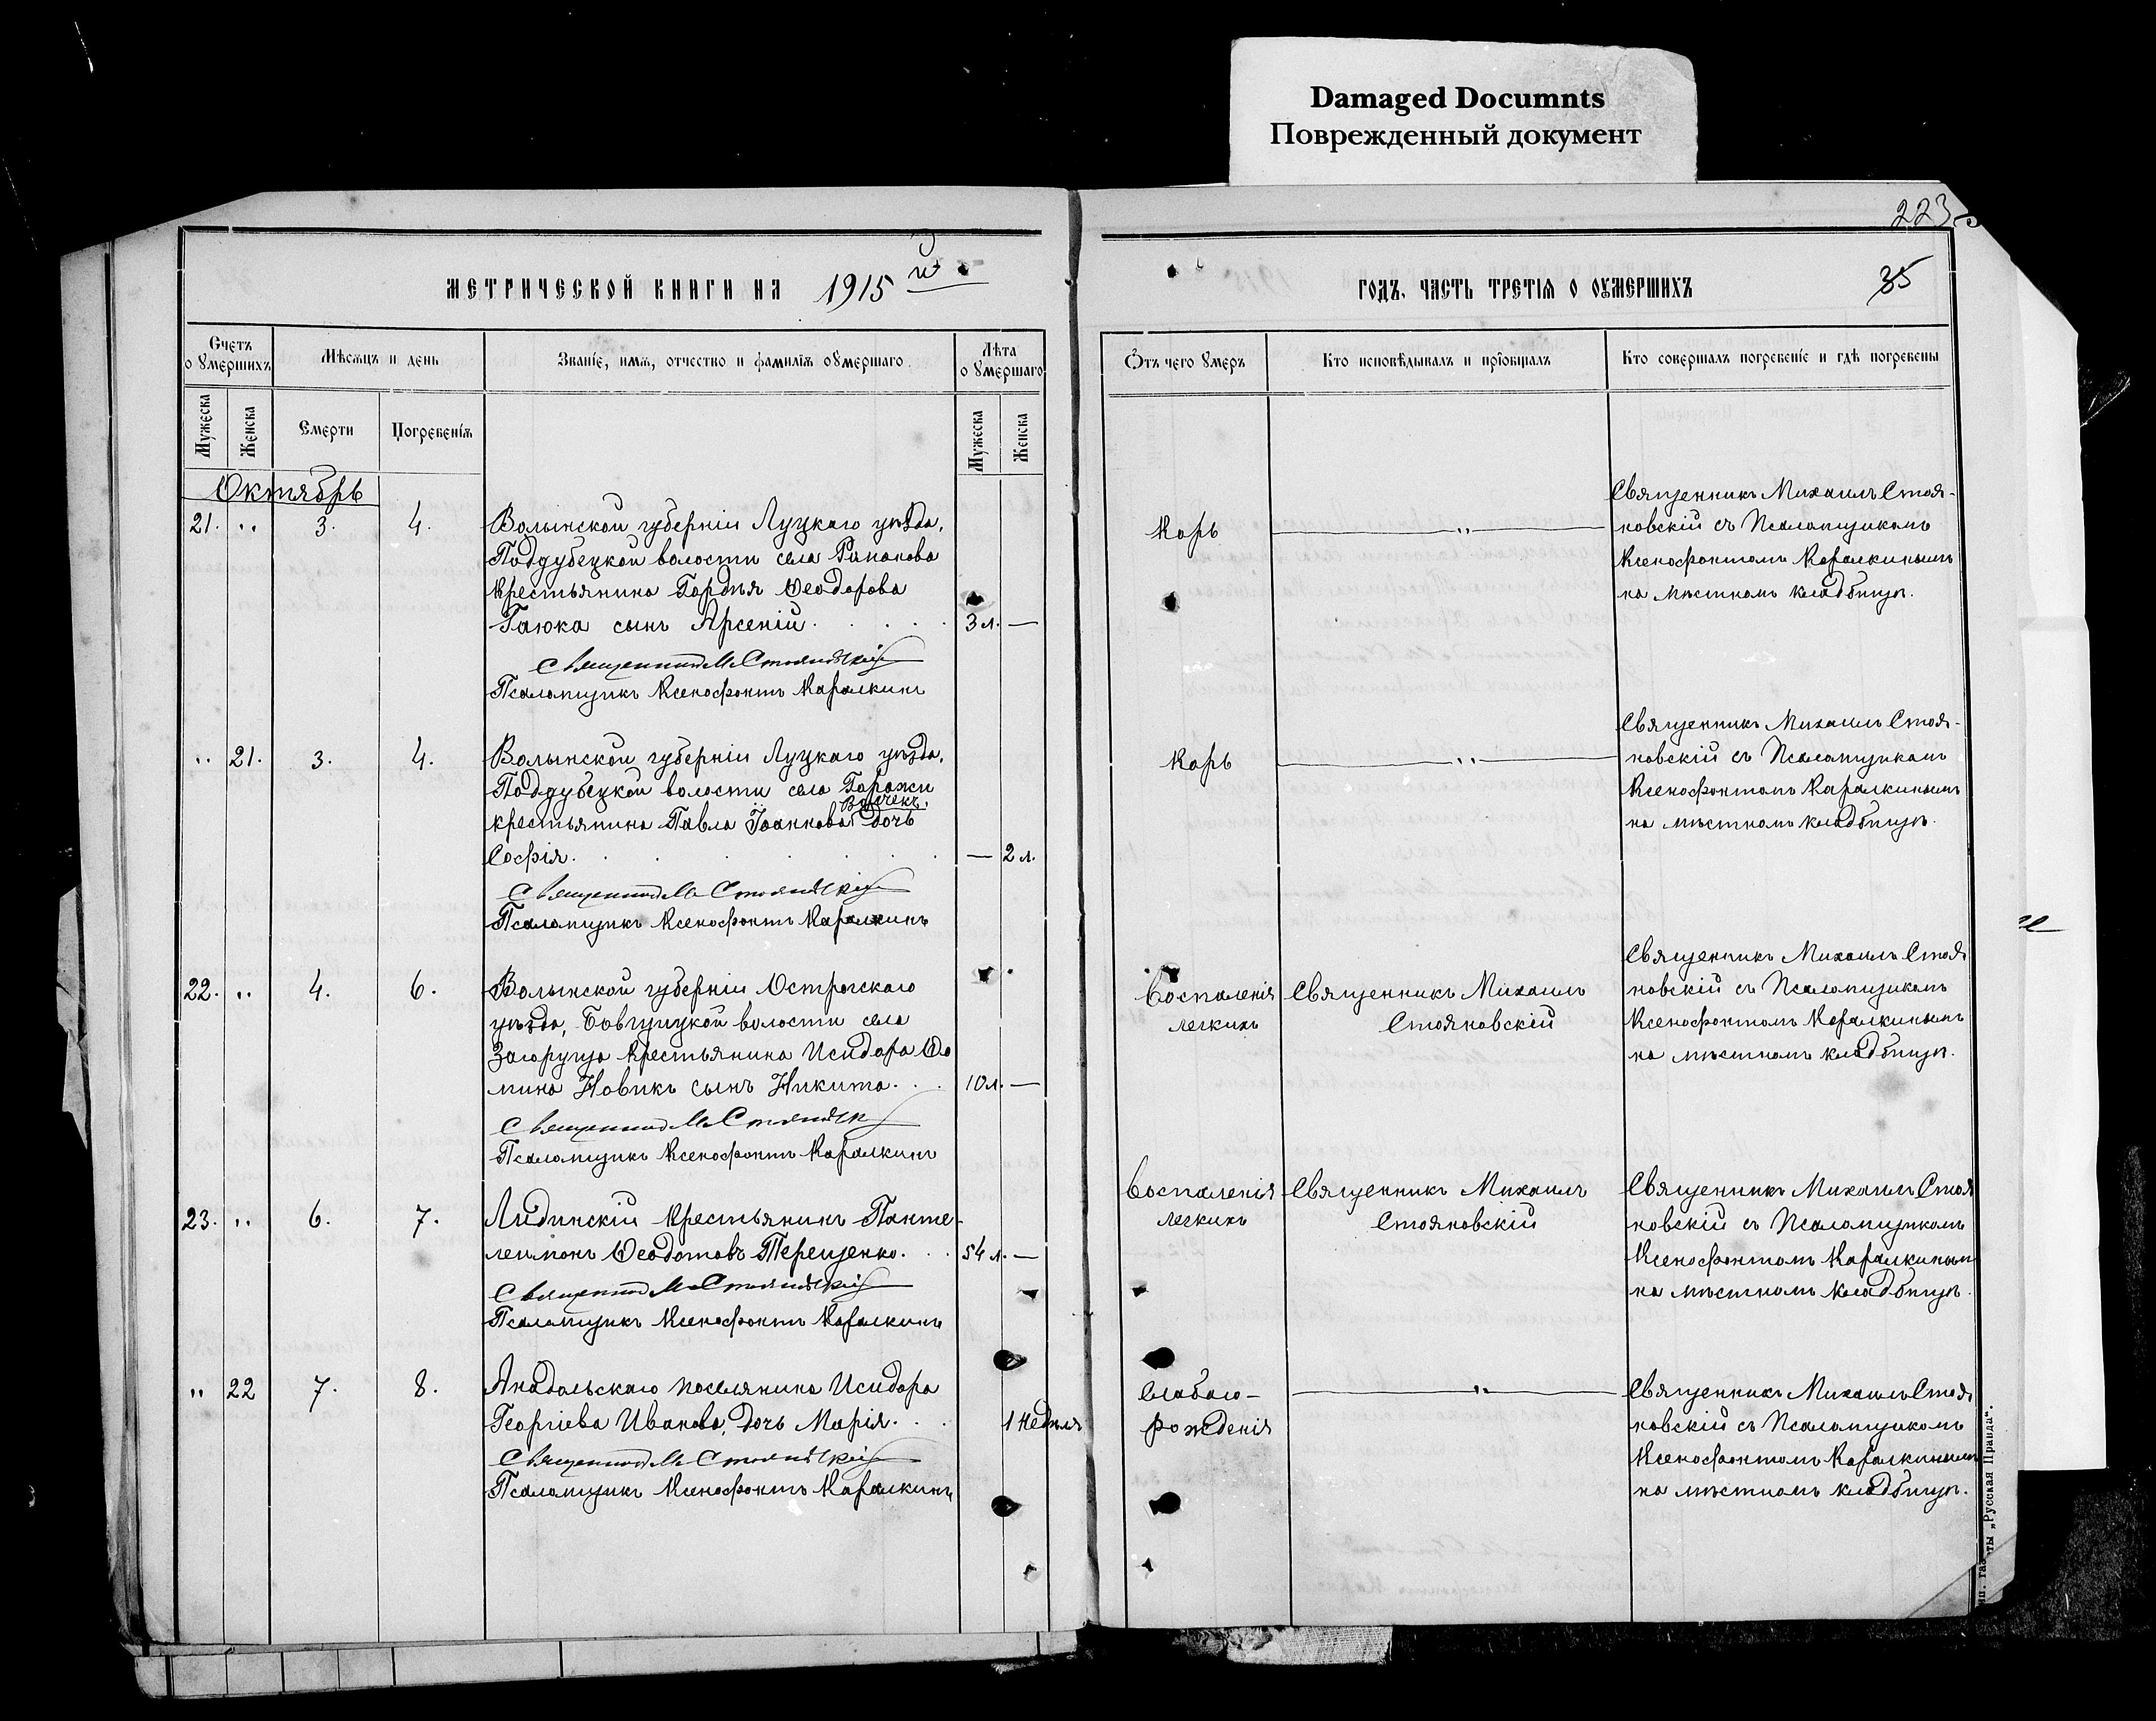 Damaged Documnts
Поврежденный документ
223
МЕТРИЧЕСКОЙ КНИГИ НА 1915 й
ГОДЪ, ЧАСТЬ ТРЕТІЯ О ОУМЕРШИХЪ
35
Счетъ оумершихъ
Мѣсяцъ и день
Званіе, имя, отчество и фамилія оумершаго
Лѣта оумершаго
Отъ чего умеръ
Кто исповѣдывалъ и пріобщалъ
Кто совершалъ погребеніе и гдѣ погребены
Мужеска
Женска
Смерти
Погребенія
Мужеска
Женска
Октябрь
21. „ 3. 4.
Волынской губерніи Луцкаго уѣзда,
Поддубецкой волости села Романова
крестьянина Гордѣя Ѳеодорова
Гаюка сынъ Арсеній. 3 л. —
Священникъ М Стояновскій
Псаломщикъ Ксенофонтъ Каралкинъ
Корь
— „ —
Священникъ Михаилъ Стоя-
новскій съ Псаломщикомъ
Ксенофонтомъ Каралкинымъ
на мѣстномъ кладбищѣ.
„ 21. 3. 4.
Волынской губерніи Луцкаго уѣзда,
Поддубецкой волости села Горажи
Волчекъ,
крестьянина Павла Іоаннова дочь
Софія. — 2 л.
Священникъ М Стояновскій
Псаломщикъ Ксенофонтъ Каралкинъ
Корь
— „ —
Священникъ Михаилъ Стоя-
новскій съ Псаломщикомъ
Ксенофонтомъ Каралкинымъ
на мѣстномъ кладбищѣ.
22. „ 4. 6.
Волынской губерніи Острогскаго
уѣзда, Бовгуцкой волости села
Загоруща крестьянина Исидора Ѳо
мина Новикъ сынъ Никита. 10 л. —
Священникъ М Стояновск
Псаломщикъ Ксенофонтъ Каралкинъ
Воспаленія
легкихъ
Священникъ Михаилъ
Стояновскій
Священникъ Михаилъ Стоя
новскій съ Псаломщикомъ
Ксенофонтомъ Каралкинымъ
на мѣстномъ кладбищѣ.
23. „ 6. 7.
Лидинскій крестьянинъ Панте-
леимонъ Ѳеодотовъ Терещенко. 54 л. —
Священникъ М Стояновскій
Псаломщикъ Ксенофонтъ Каралкинъ
Воспаленія
легкихъ
Священникъ Михаилъ
Стояновскій
Священникъ Михаилъ Стоя
новскій съ Псаломщикомъ
Ксенофонтомъ Каралкиным
на мѣстномъ кладбищѣ.
„ 22 7. 8.
Анадольскаго поселянина Исидора
Георгіева Иванова, дочь Марія. 1 недѣля
Священникъ М Стояновскій
Псаломщикъ Ксенофонтъ Каралкинъ
Слабаго-
рожденія
— „ —
Священникъ Михаилъ Стоя
новскій съ Псаломщикомъ
Ксенофонтомъ Каралкинымъ
на мѣстномъ кладбищѣ.
ип. газ ты „Русская Правда“.